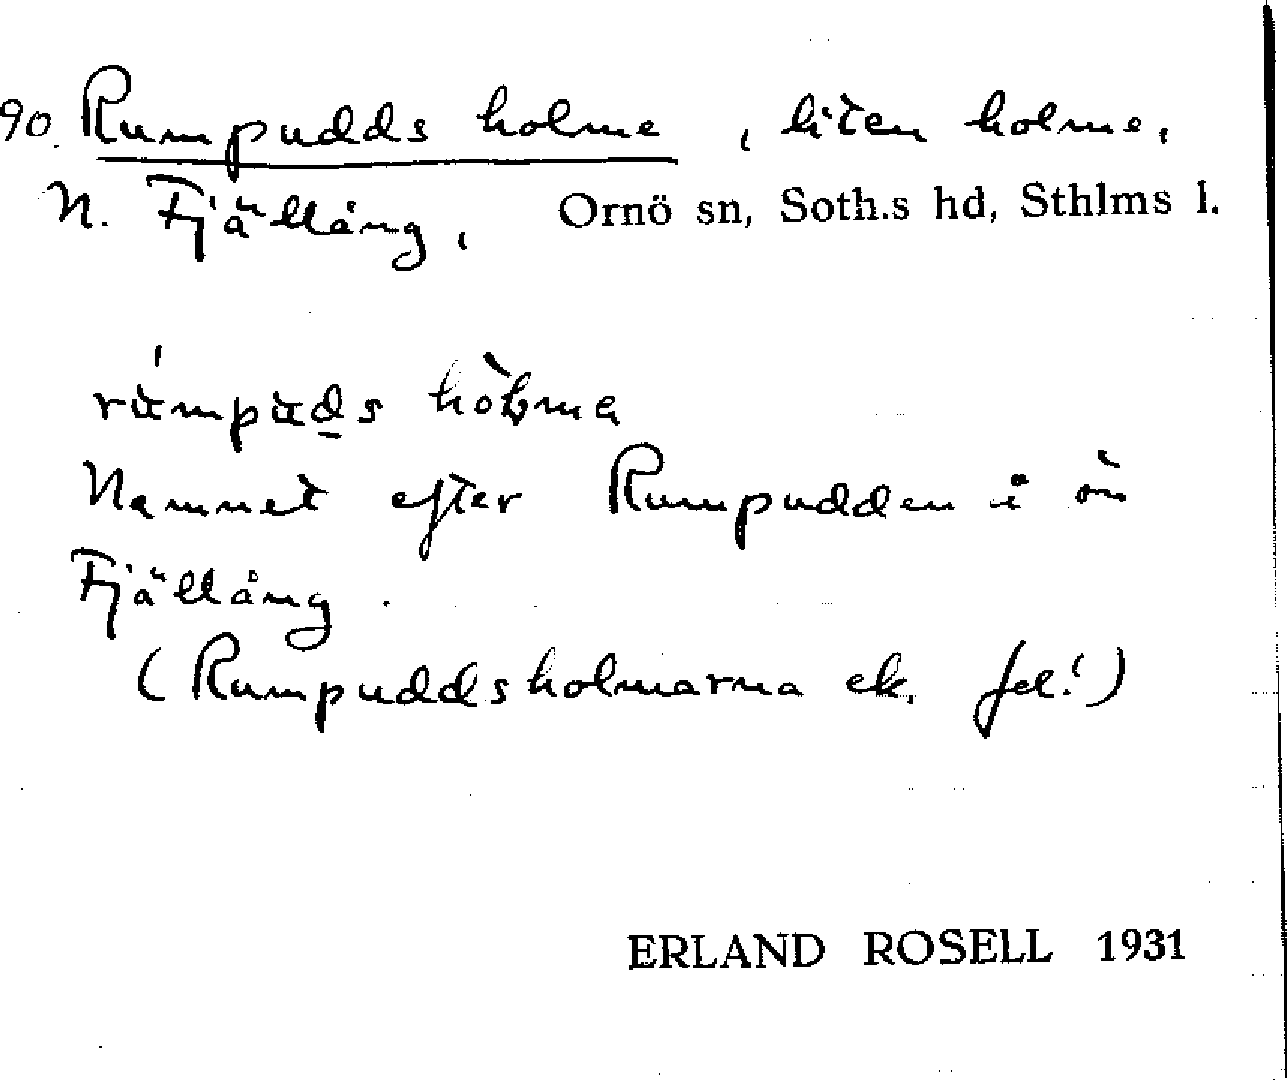 90. Rumpudds holme, liten holme,
N. Fjällång, Ornö sn, Soth.s hd, Sthlms l.
Namnet efter Rumpudden i ön
Fjällång.
(Rumpuddsholmarna ek. fel!)
ERLAND ROSELL 1931